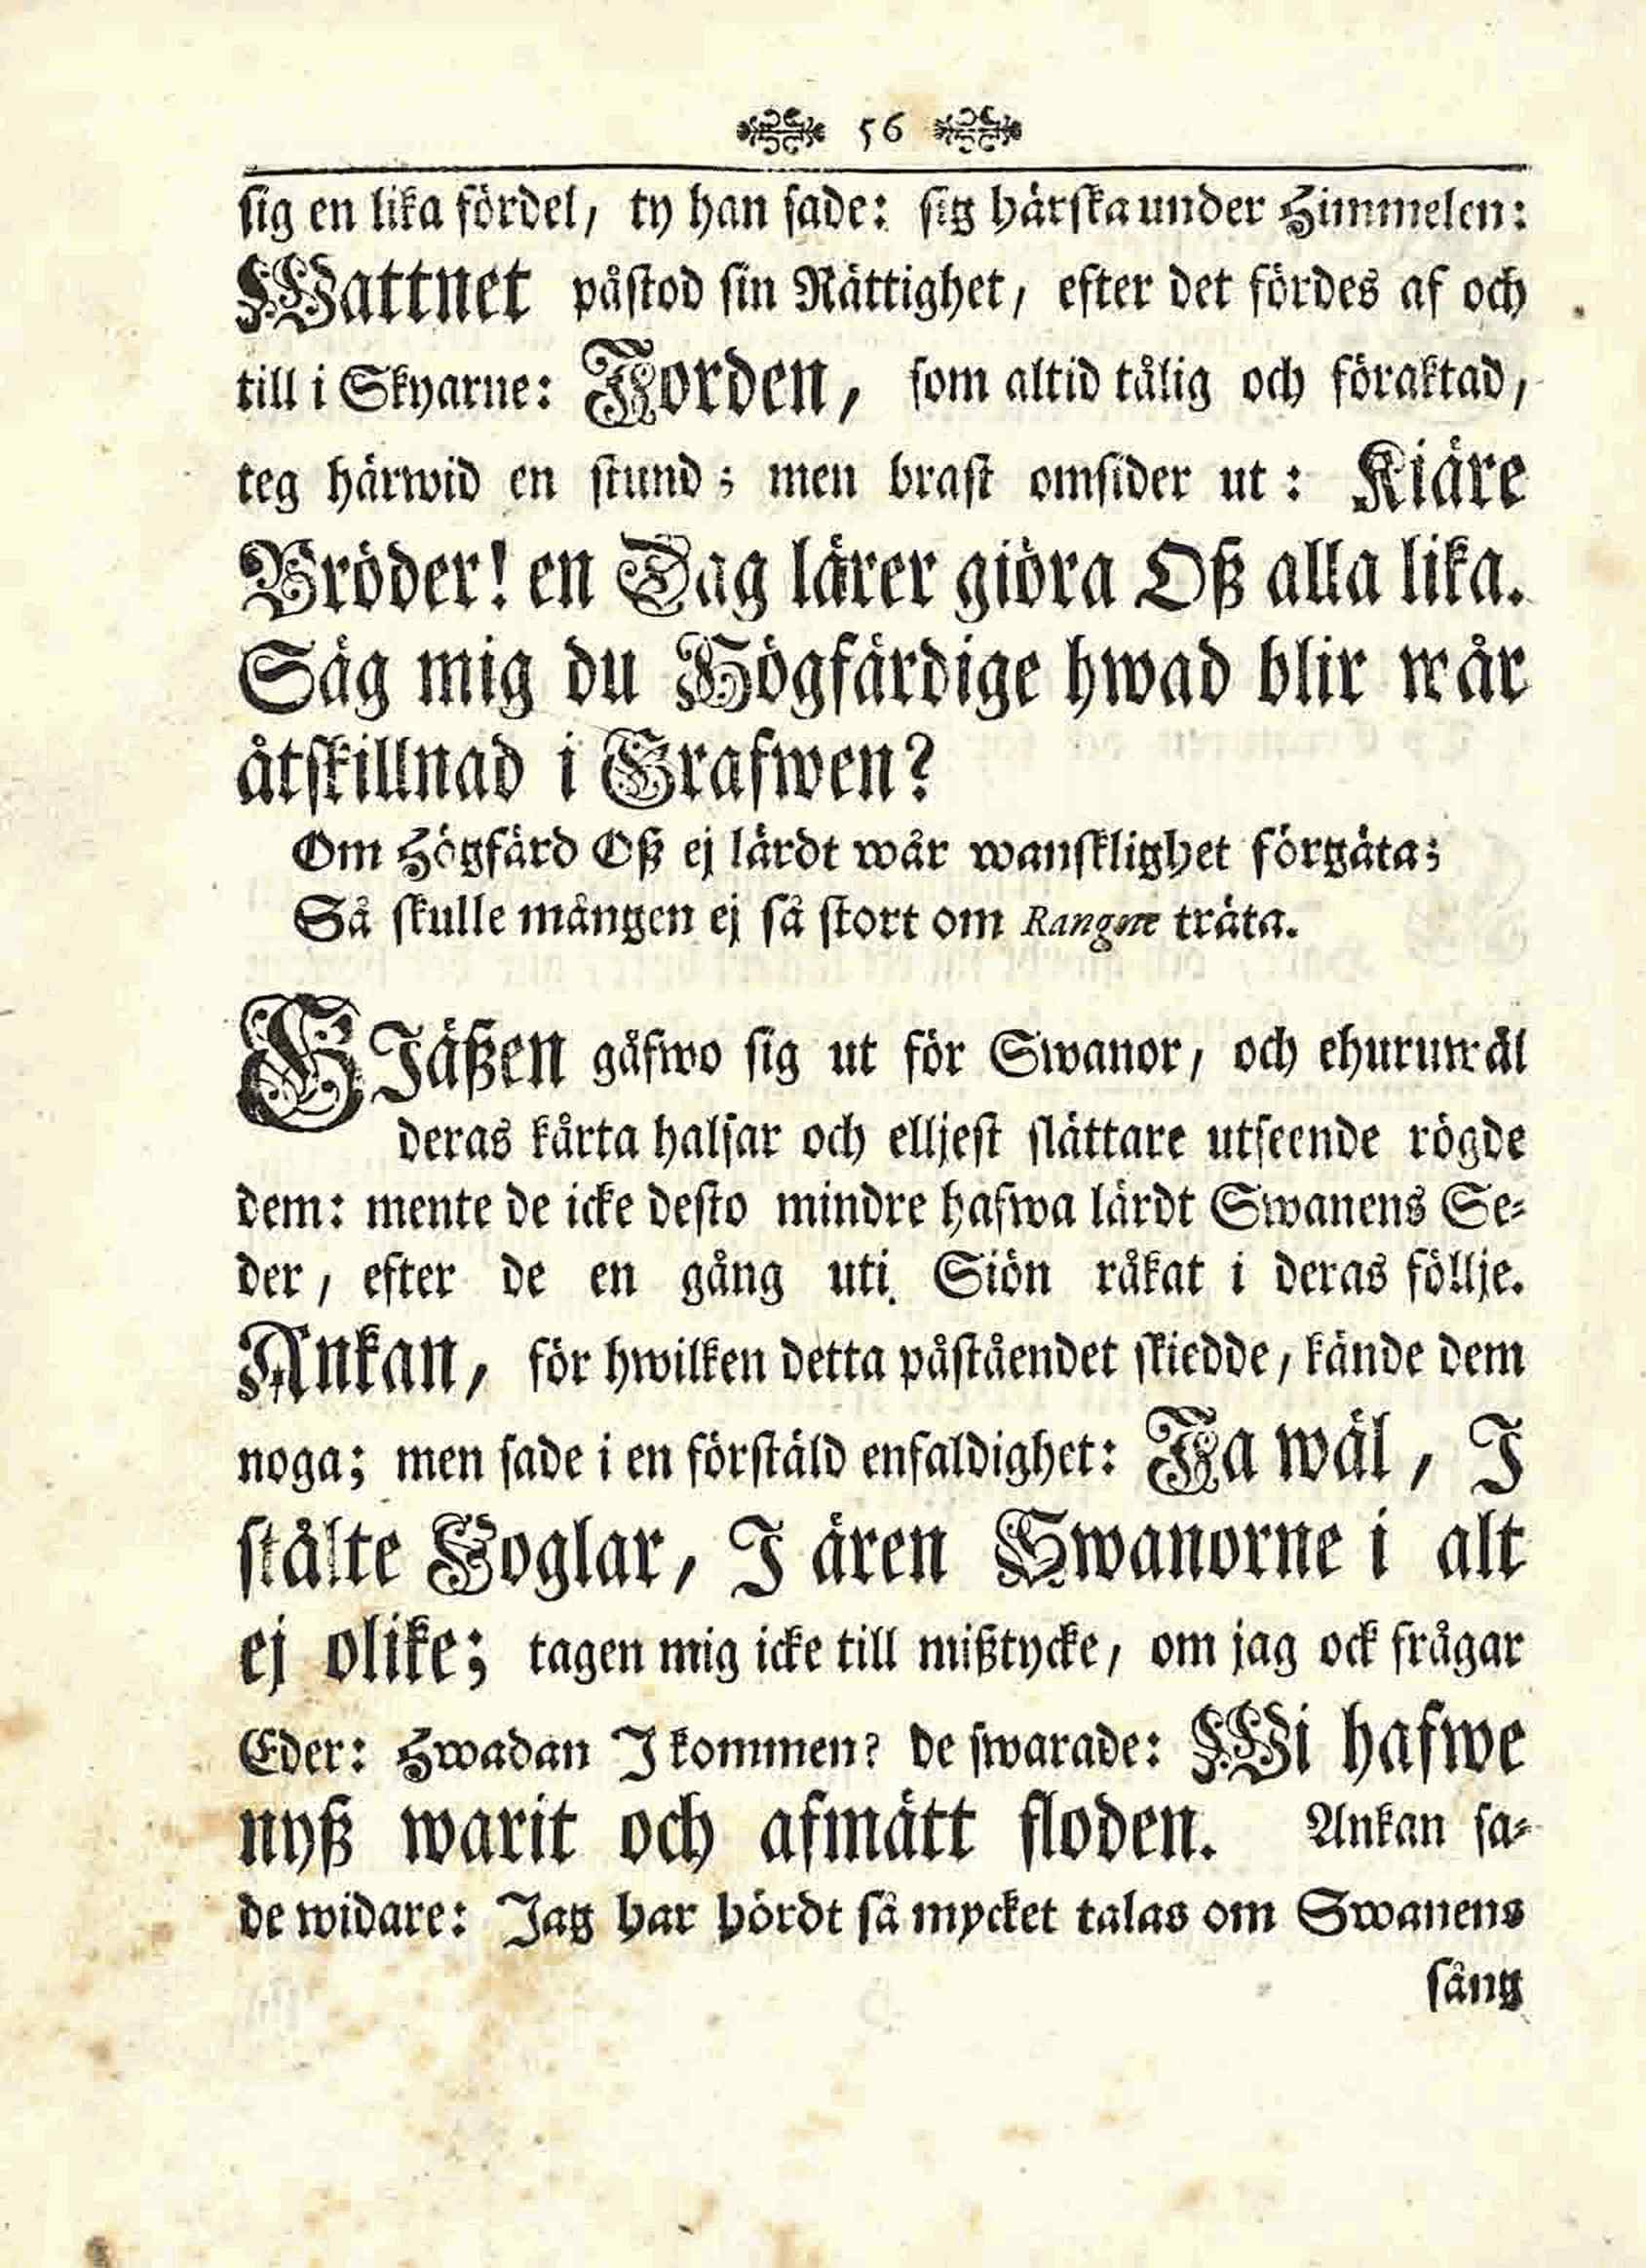 56
sig en lika fördel, ty han sade: sig härska under Himmelen:
Wattnet påstod sin Rättighet, efter det fördes af och
till i Skyarne: Jorden, som altid tålig och föraktad,
teg härwid en stund; men brast omsider ut: Kiäre
Bröder! en Dag lärer giöra Oß alla lika.
Säg mig du Högfärdige hwad blir wår
åtskillnad i Grafwen?
Om Högfärd Oß ej lärdt wår wansklighet förgäta;
Så skulle mången ej så stort om Rangne träta.
GJäßen gåfwo sig ut för Swanor, och ehuruwäl
deras kårta halsar och elljest slättare utseende rögde
dem: mente de icke desto mindre hafwa lärdt Swanens Se-
der, efter de en gång uti Siön råkat i deras föllje.
Ankan, för hwilken detta påståendet skiedde, kände dem
noga; men sade i en förstäld enfaldighet: Ja wäl, J
stålte Foglar, J ären Swanorne i alt
ej olike; tagen mig icke till mißtycke, om jag ock frågar
Eder: Hwadan J kommen? de swarade: Wi hafwe
nyß warit och afmätt floden. Ankan sa-
de widare: Jag har hördt så mycket talas om Swanens
sång